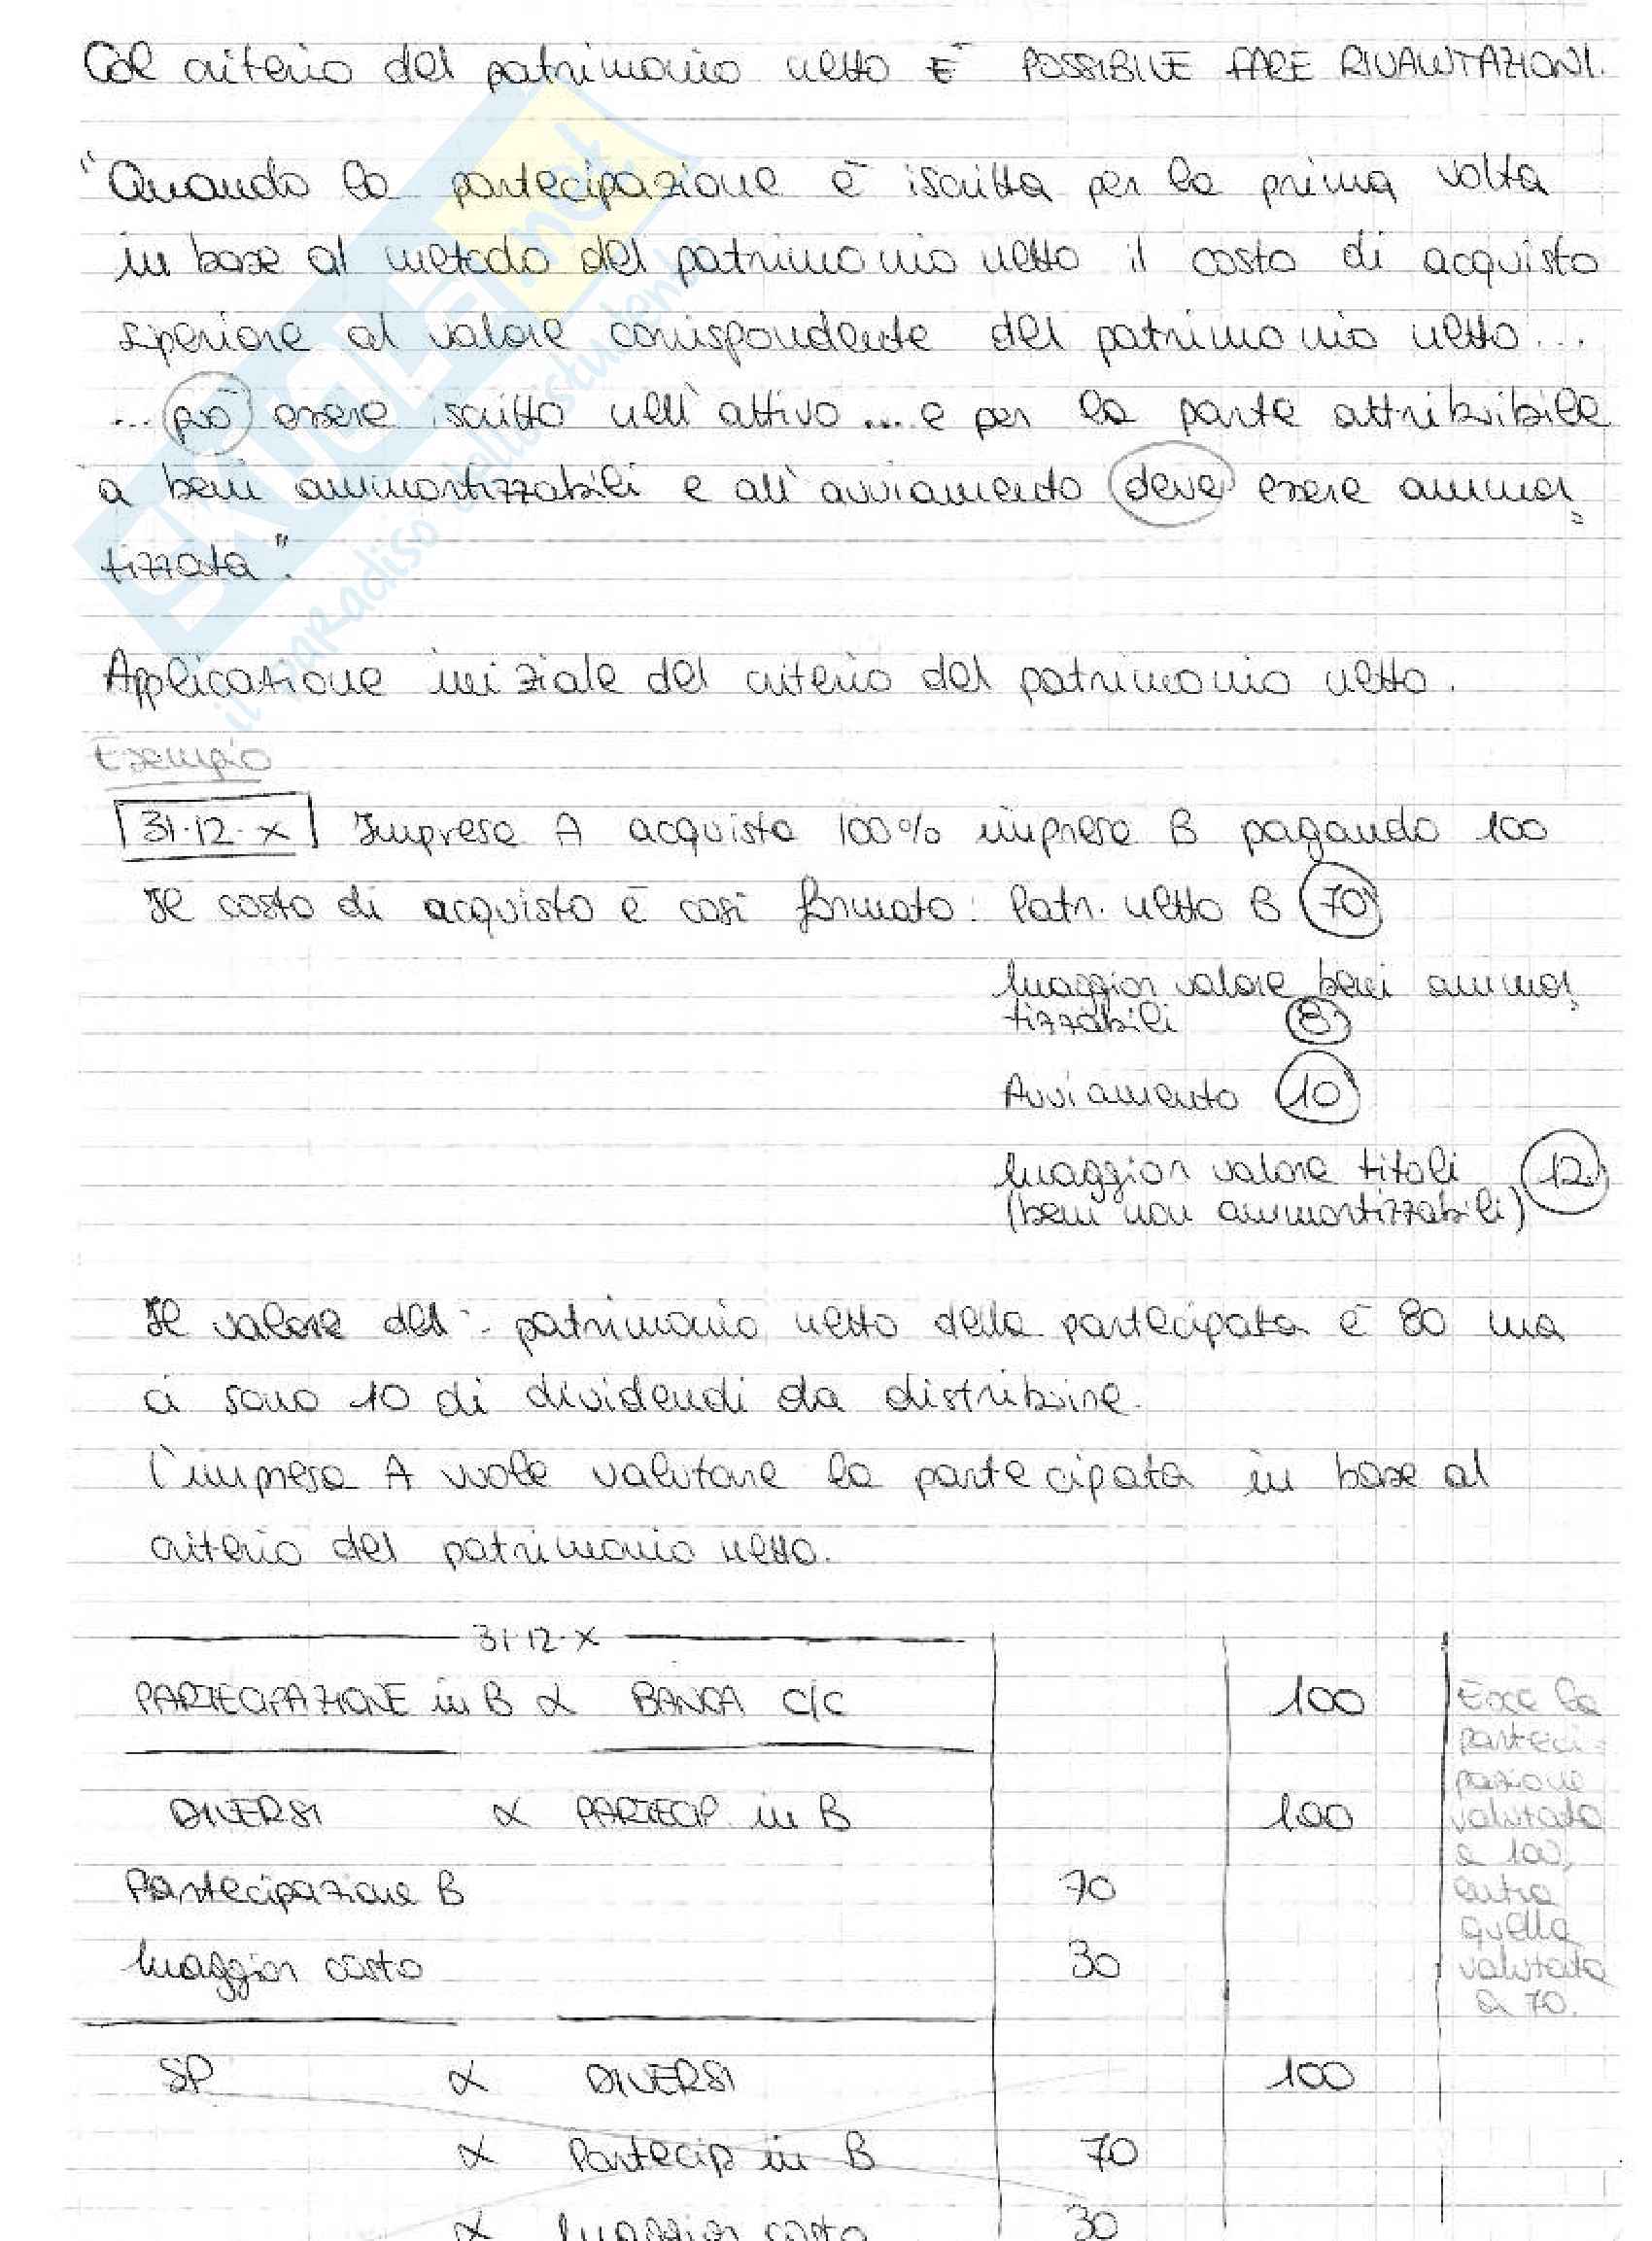 Col criterio del patrimonio netto È POSSIBILE FARE RIVALUTAZIONI.
"Quando la partecipazione è iscritta per la prima volta
in base al metodo del patrimonio netto il costo di acquisto
superiore al valore corrispondente del patrimonio netto...
... può essere iscritto nell'attivo .... e per la parte attribuibile
a beni ammortizzabili e all'avviamento deve essere ammor
tizzata".
Applicazione iniziale del criterio del patrimonio netto.
Esempio
31·12·X Impresa A acquista 100% impresa B pagando 100
Il costo di acquisto è così formato: Patr. netto B 70
Maggior valore beni ammor
tizzabili 8
Avviamento 10
Maggior valore titoli 12
(beni non ammortizzabili)
Il valore del patrimonio netto della partecipata è 80 ma
ci sono 10 di dividendi da distribuire.
L'impresa A vuole valutare la partecipata in base al
criterio del patrimonio netto.
31·12·X
PARTECIPAZIONE in B a BANCA C/C 100
DIVERSI a PARTECIP. in B 100
Partecipazione B 70
Maggior costo 30
Esce la
parteci-
pazione
valutata
a 100,
entra
quella
valutata
a 70.
SP a DIVERSI 100
a Partecip in B 70
a Maggior costo 30
SKUOLA.net
il paradiso dello studente